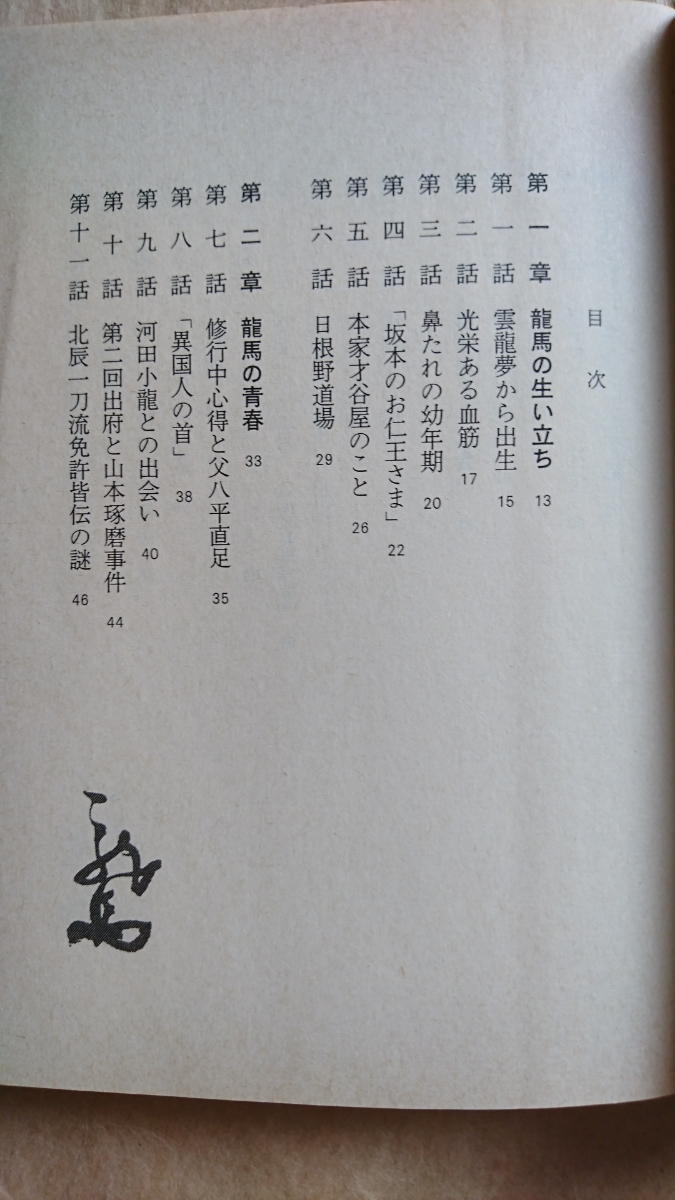 目次
第一章 龍馬の生い立ち 13
第一話 雲龍夢から出生 15
第二話 光栄ある血筋 17
第三話 鼻たれの幼年期 20
第四話 「坂本のお仁王さま」 22
第五話 本家才谷屋のこと 26
第六話 日根野道場 29
第二章 龍馬の青春 33
第七話 修行中心得と父八平直足 35
第八話 「異国人の首」 38
第九話 河田小龍との出会い 40
第十話 第二回出府と山本琢磨事件 44
第十一話 北辰一刀流免許皆伝の謎 46